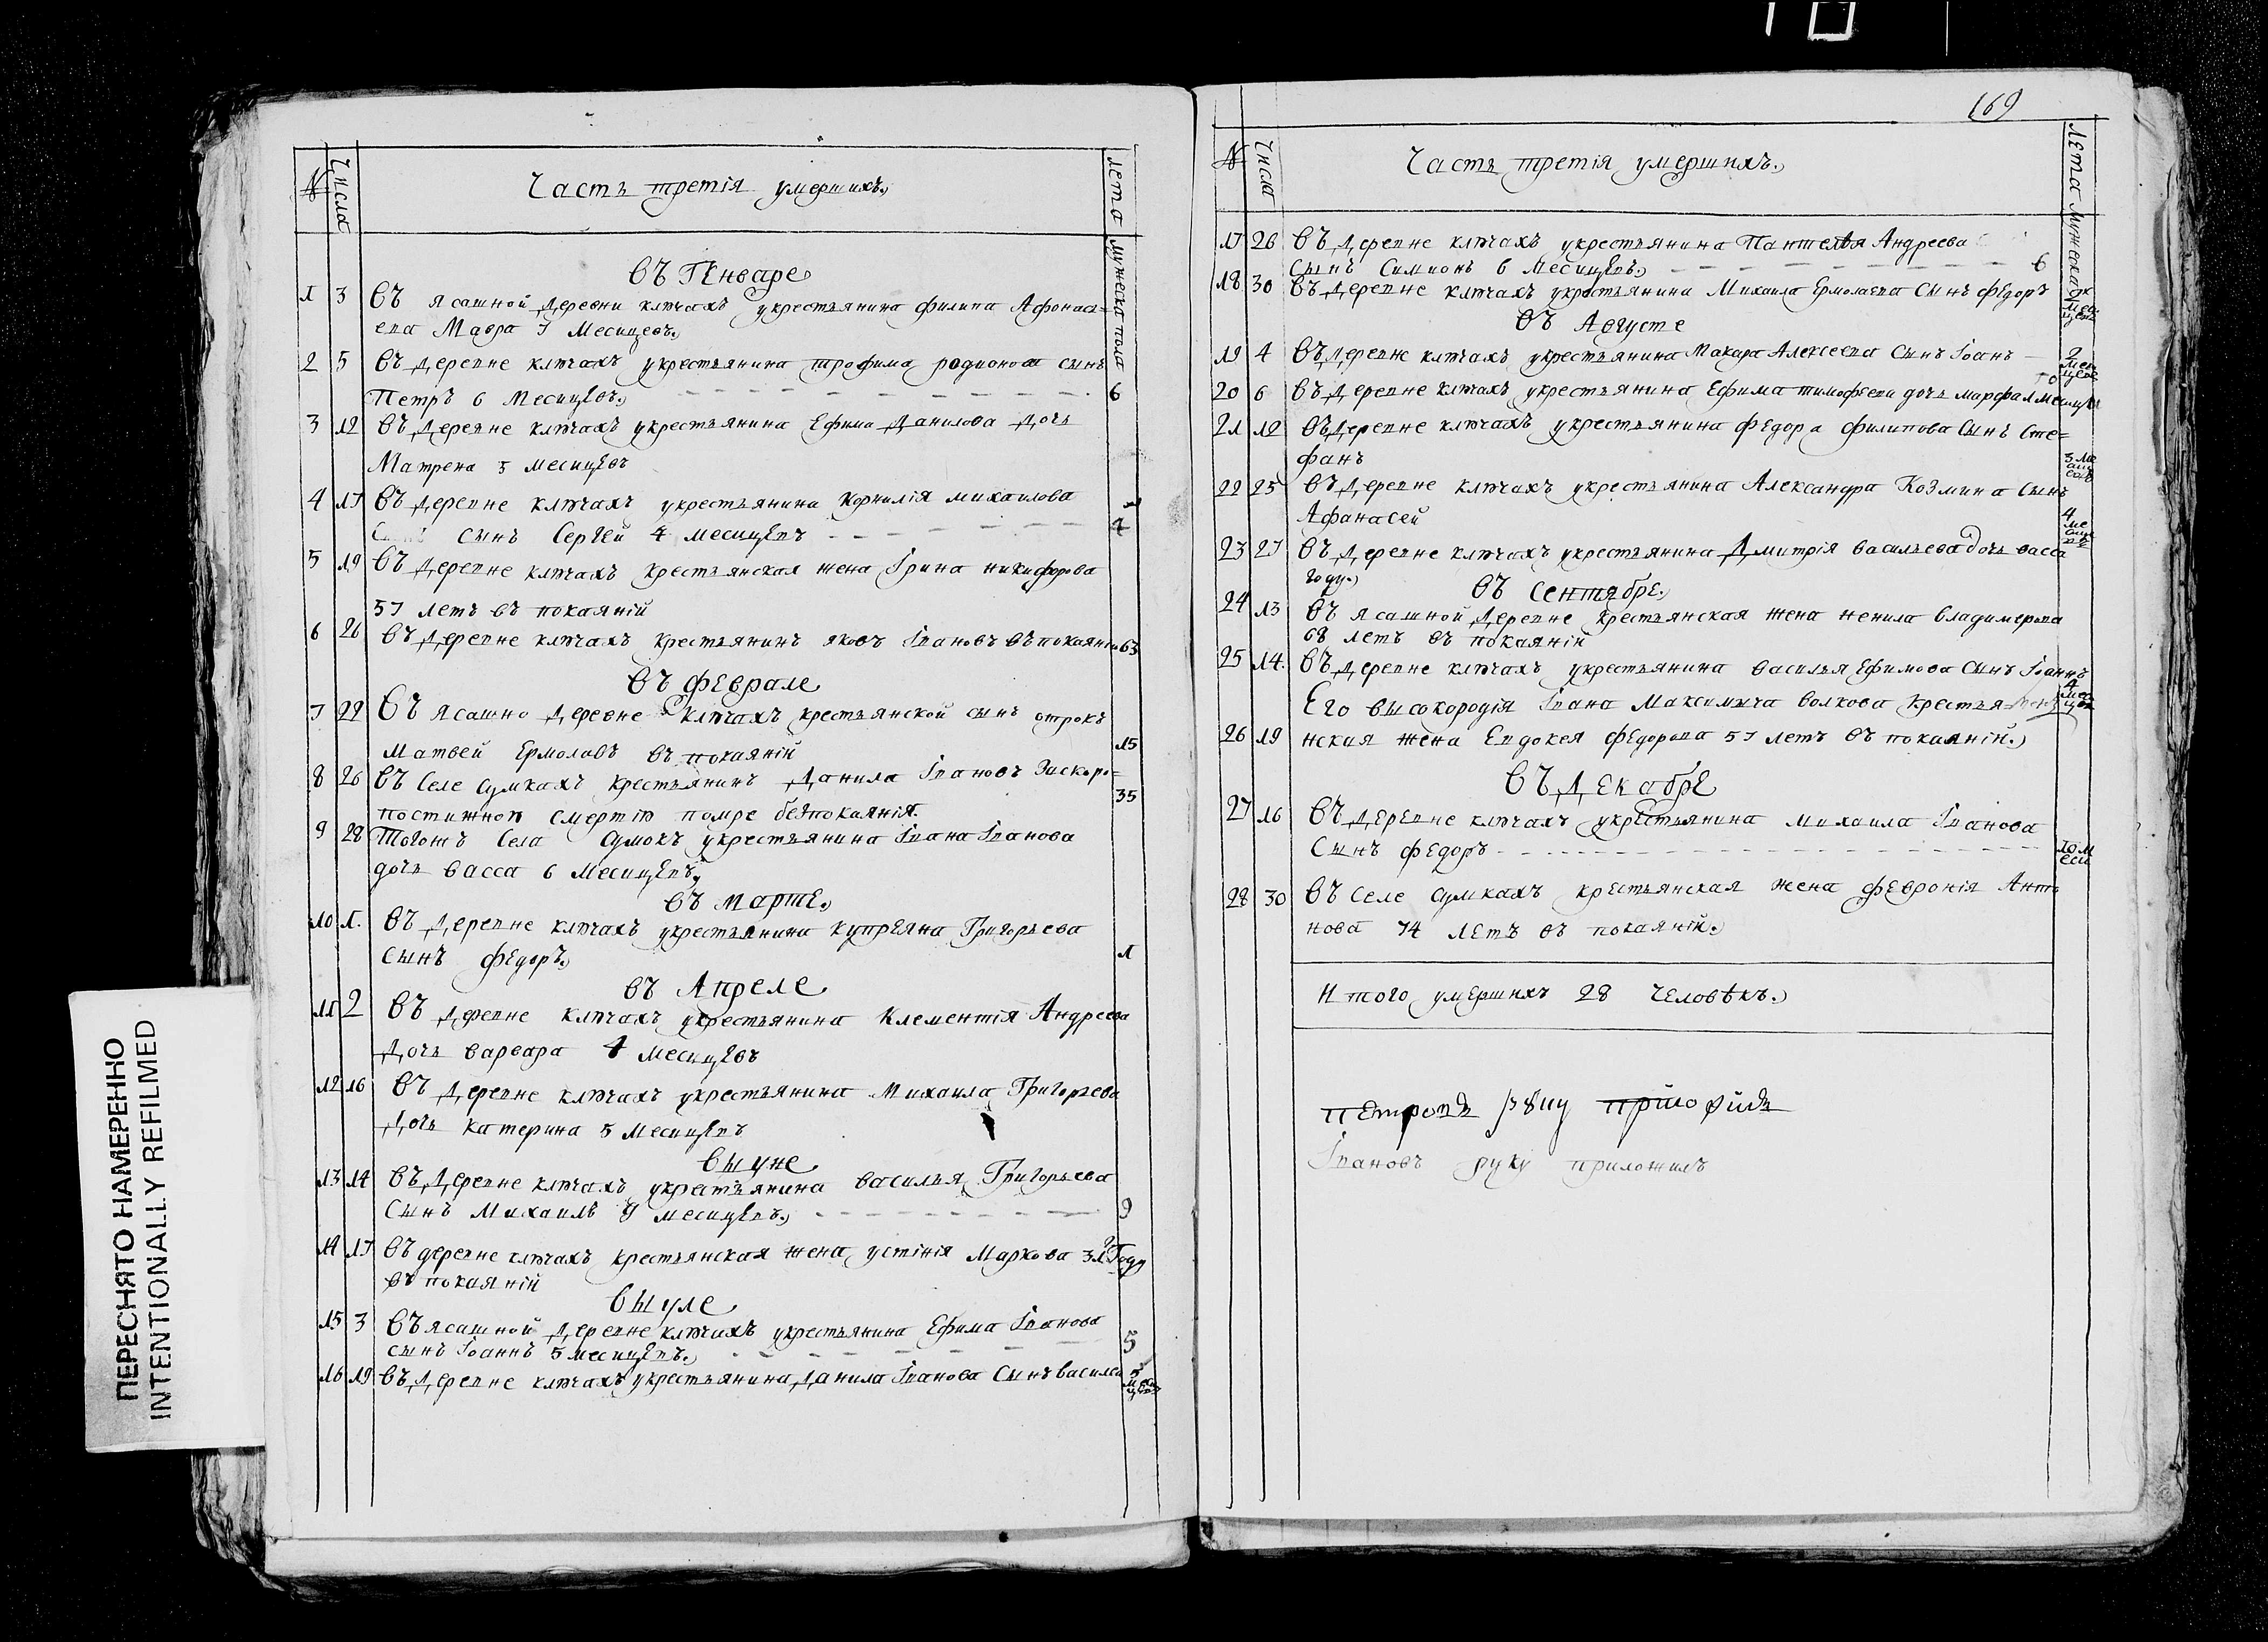 169
ПЕРЕСНЯТО НАМЕРЕННО
INTENTIONALLY REFILMED
№ Числа Часть третія умершихъ. лета мужеска пола
Въ Генваре
1 3 Въ ясашной деревни ключахъ укрестьянина филипа Афонась=
ева Мавра 7 Месицевъ.
2 5 Въ деревне ключахъ укрестьянина трофима родионова сынъ
Петръ 6 Месицевъ. 6
3 12 Въ деревне ключахъ укрестьянина Ефима Данилова дочь
Матрена 5 месицевъ
4 17 Въ деревне ключахъ укрестьянина корнилія михаилова
сынъ Сергей 4 месицевъ 4
5 19 Въ деревне ключахъ крестьянская жена Iрина никифорова
57 летъ въ покаяній
6 26 Въ деревне ключахъ крестьянинъ яковъ Iвановъ въ покаяніи 63
Въ феврале
7 22 Въ ясашно деревне ключахъ крестьянской сынъ отрокъ
матвей Ермолавъ въ покаяній 15
8 26 Въ Селе сумкахъ крестьянинъ Данила Iвановъ скоро=
постижною смертію помре безпокаянія. 35
9 28 Тогожъ Села сумокъ укрестьянина Iвана Iванова
дочь васса 6 месицевъ,
Въ марте.
10 1. Въ деревне ключахъ укрестьянина купреяна Григорьева
сынъ федоръ. 1
Въ Апреле
11 2 Въ деревне ключахъ укрестьянина Клементія Андреева
дочь варвара 4 месицевъ
12 16 Въ деревне ключахъ укрестьянина Михаила Григорьева
дочь катерина 5 месицевъ
Выуне
13 14 Въ деревне ключахъ укрестьянина василья Григорьева
сынъ Михаилъ 9 месицевъ. 9
14 17 Въ деревне ключахъ крестьянская жена устінія Маркова 31 Году
въ покаяній
Выуле
15 3 Въ ясашной деревне ключахъ укрестьянина Ефима Iванова
сынъ Iоаннъ 5 месицевъ. 5
16 19 Въ деревне ключахъ укрестьянина Данила Iванова Сынъ василей 5 месицевъ
№ числа Часть третія умершихъ. Лета мужеска
17 26 Въ деревне ключахъ укрестьянина Пантелѣя Андреева
сынъ Симионъ 6 месицевъ. 6
18 30 Въ деревне ключахъ укрестьянина Михаила Ермолаева Сынъ федоръ
Въ Августе
19 4 Въ деревне ключахъ укрестьянина Макара Алексеева Сынъ Iоанъ 2 месицев
20 6 Въ деревне ключахъ укрестьянина Ефима тимофеева дочь марфа
21 12 Въ деревне ключахъ укрестьянина федора филипова Сынъ Сте=
фанъ 5 месицевъ
22 25 Въ деревне ключахъ укрестьянина Александра Козмина Сынъ
Афанасей 4
23 27 Въ деревне ключахъ укрестьянина Дмитрія васильева дочь васса
году.
Въ Сентябре.
24 13 Въ ясашной деревне крестьянская жена ненила владимерова
68 летъ въ покаяній
25 14. Въ деревне ключахъ укрестьянина василья Ефимова Сынъ Iоаннъ 4
Его высокородія Iвана Максимыча волкова крестья=
26 19 нская жена Евдокея федорова 57 летъ въ покаяній.
Въ декабре
27 16 Въ деревне ключахъ укрестьянина михаила Iванова
Сынъ федоръ 10 меси
28 30 Въ Селе сумкахъ крестьянская жена февронія Анто
нова 74 летъ въ покаяній.
Итого умершихъ 28 человѣкъ.
Iвановъ руку приложилъ